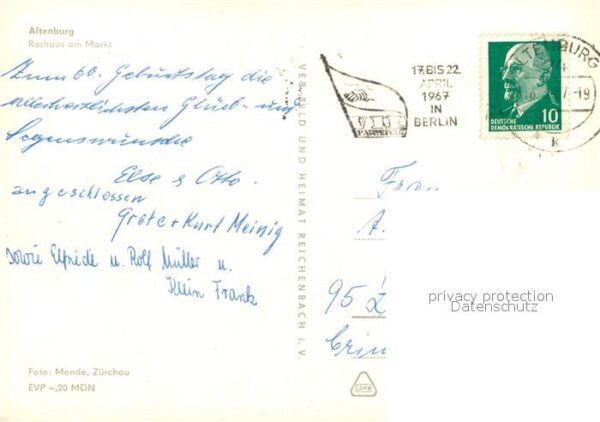 Altenburg
Rathaus am Markt
Zum 60. Geburtstag die
allerherzlichsten Glück- und
Segenswünsche
Else & Otto.
angeschlossen
Grete + Kurt Meinig
sowie Elfriede u. Rolf Müller u.
Klein Frank
Foto: Mende, Zürchau
EVP -,20 MDN
VEB BILD UND HEIMAT REICHENBACH i. V.
17. BIS 22.
APRIL
1967
IN
BERLIN
VII
PARTEITAG
ALTENBURG
10
DEUTSCHE
DEMOKRATISCHE REPUBLIK
k
Frau
A.
95
privacy protection
Datenschutz